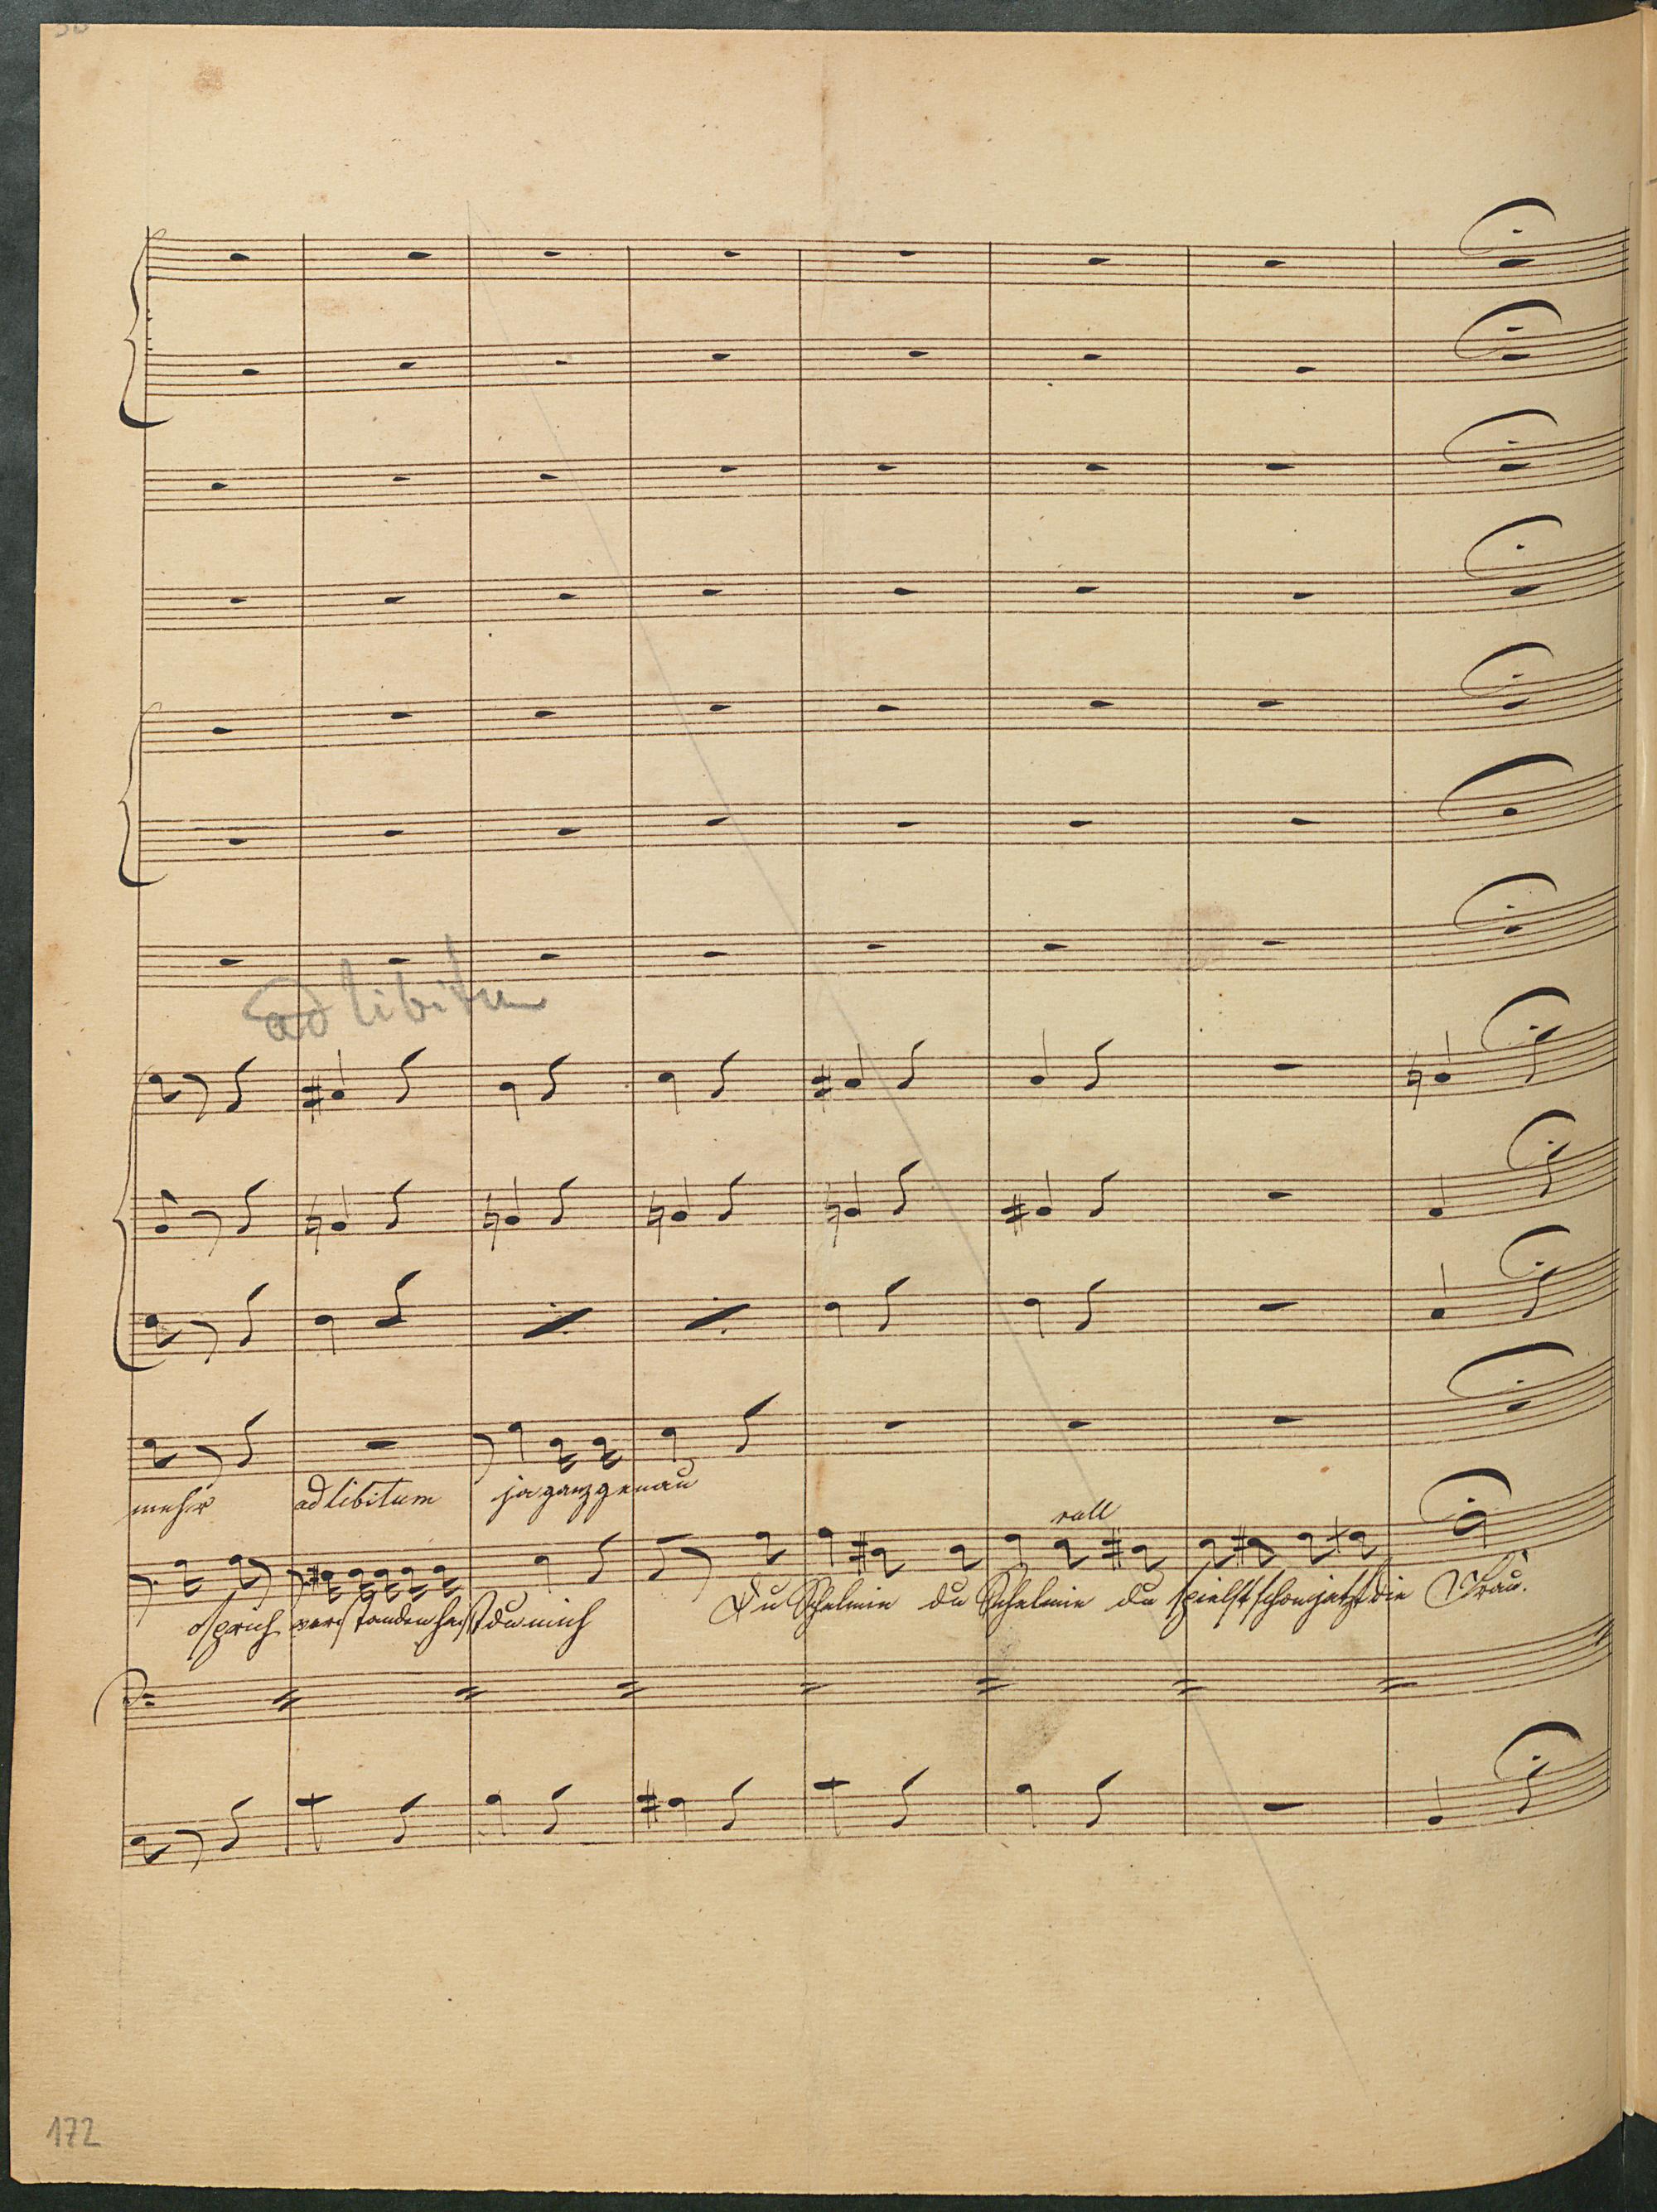 ad libitum
mehr ad libitum ja ganz genau
rall
o sprich verstanden hast du mich Du Schelmin du Schelmin du spielst schon jetzt die Frau.
172